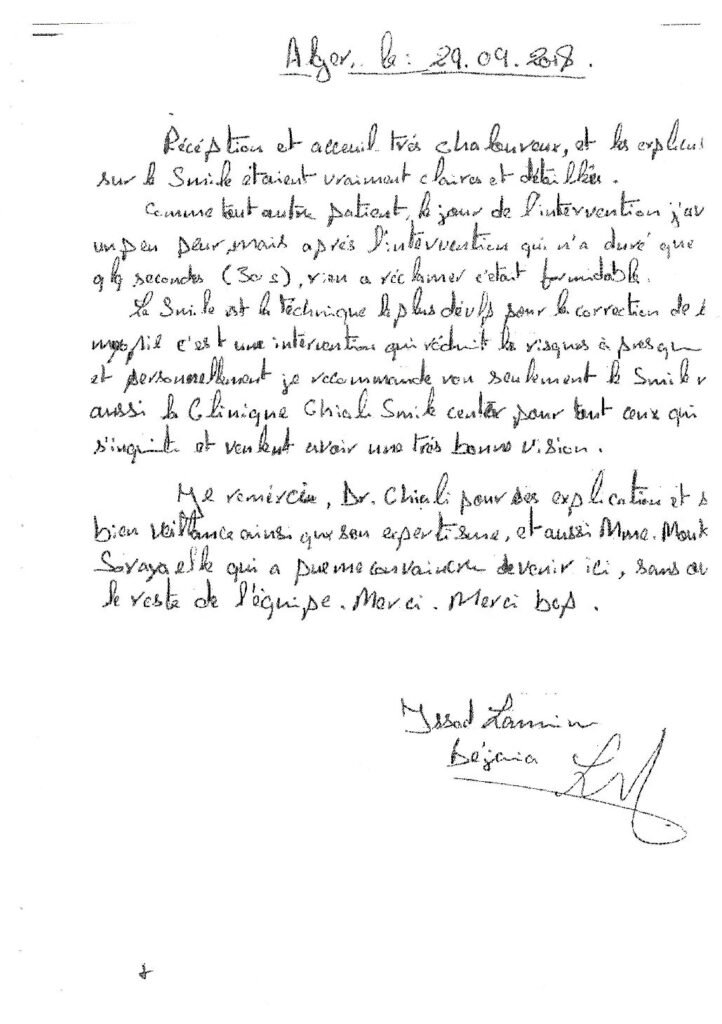 Alger, le : 29.09.2018.
Récéption et acceuil trés chaloureux, et les explica
sur le Smile étaient vraiment claires et détaillées.
Comme tout autre patient, le jour de l'intervention j'av
un peu peur, mais aprés l'intervention qui n'a duré que
qlq secondes (30 s), rien a réclamer c'était formidable.
Le Smile est la téchnique la plus pour la correction de
c'est une intervention qui réduit les risques à presque
et personnellement je recommande non seulement le Smile
aussi la Clinique Chiali Smile center pour tout ceux qui
s'inquiete et veulent avoir une trés bonne vision.
Je remércie, Dr. Chiali pour ses explication et s
bien veillance ainsi que son expertisme, et aussi Mme. Mouk
Soraya elle qui a pu me convaincre de venir ici, sans ou
le reste de l'équipe. Merci. Merci bcp.
Issad Lamine
Béjaia
LM